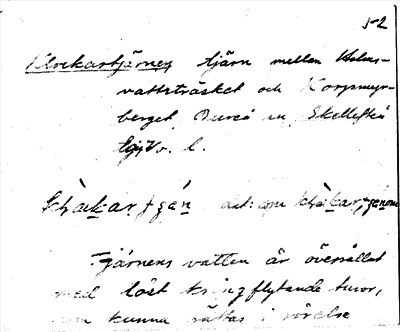 52
Klockartjärnen tjärn mellan Holms-
vattsträsket och Korpmyr-
berget, Bureå sn, Skellefteå
tgj, Vb. l.
det:
Tjärnens vatten är överallt
med löst kringflytande tuvor,
som kunna sättas i rörelse